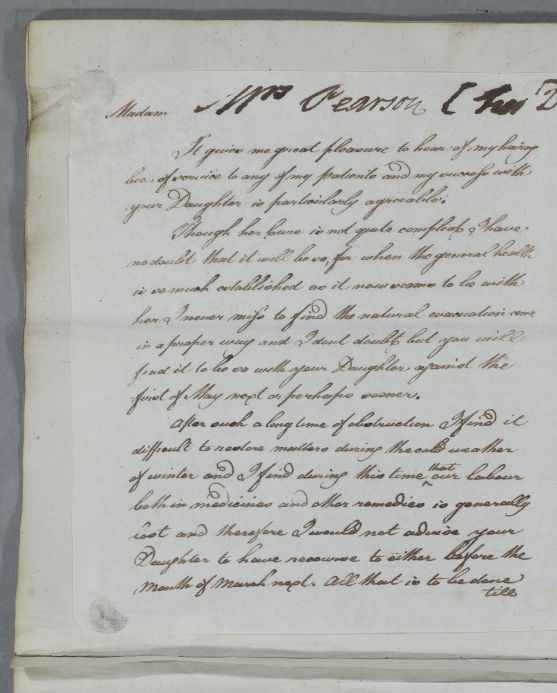 Madam Mrs Pearson [her D
It gives me great pleasure to hear of my having
been of service to any of my patients and my success with
your Daughter is particularly agreeable.
Though her Cure is not quite compleat I have
no doubt that it will be so, for when the general health
is so much established as it now seems to be with
her I never miss to find the natural evacuation come
in a proper way and I dont doubt but you will
find it to be so with your Daughter against the
first of May next or perhaps sooner.
After such a long time of obstruction I find it
difficult to restore matters during the cold weather
of winter and I find during this time that our labour
both in medicines and other remedies is generally
lost and therefore I would not advise your
Daughter to have recourse to either before the
Month of March next. All that is to be done
till